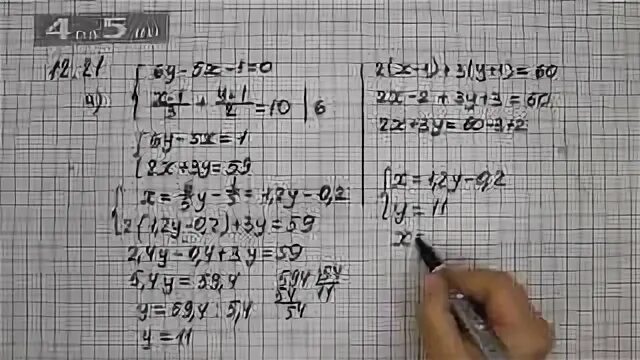 4 по 5 .ru
12.21
а) { 6y - 5x - 1 = 0
{ x-1/3 + y+1/2 = 10 | 6
{ 6y - 5x = 1
{ 2x + 3y = 59
{ x = 6/5 y - 1/5 = 1,2y - 0,2
{ 2(1,2y - 0,2) + 3y = 59
2,4y - 0,4 + 3y = 59
5,4y = 59,4
y = 59,4 : 5,4
y = 11
594 | 54
54 | 11
54
2(x-1) + 3(y+1) = 60
2x - 2 + 3y + 3 = 60
2x + 3y = 60 - 3 + 2
{ x = 1,2y - 0,2
{ y = 11
x =